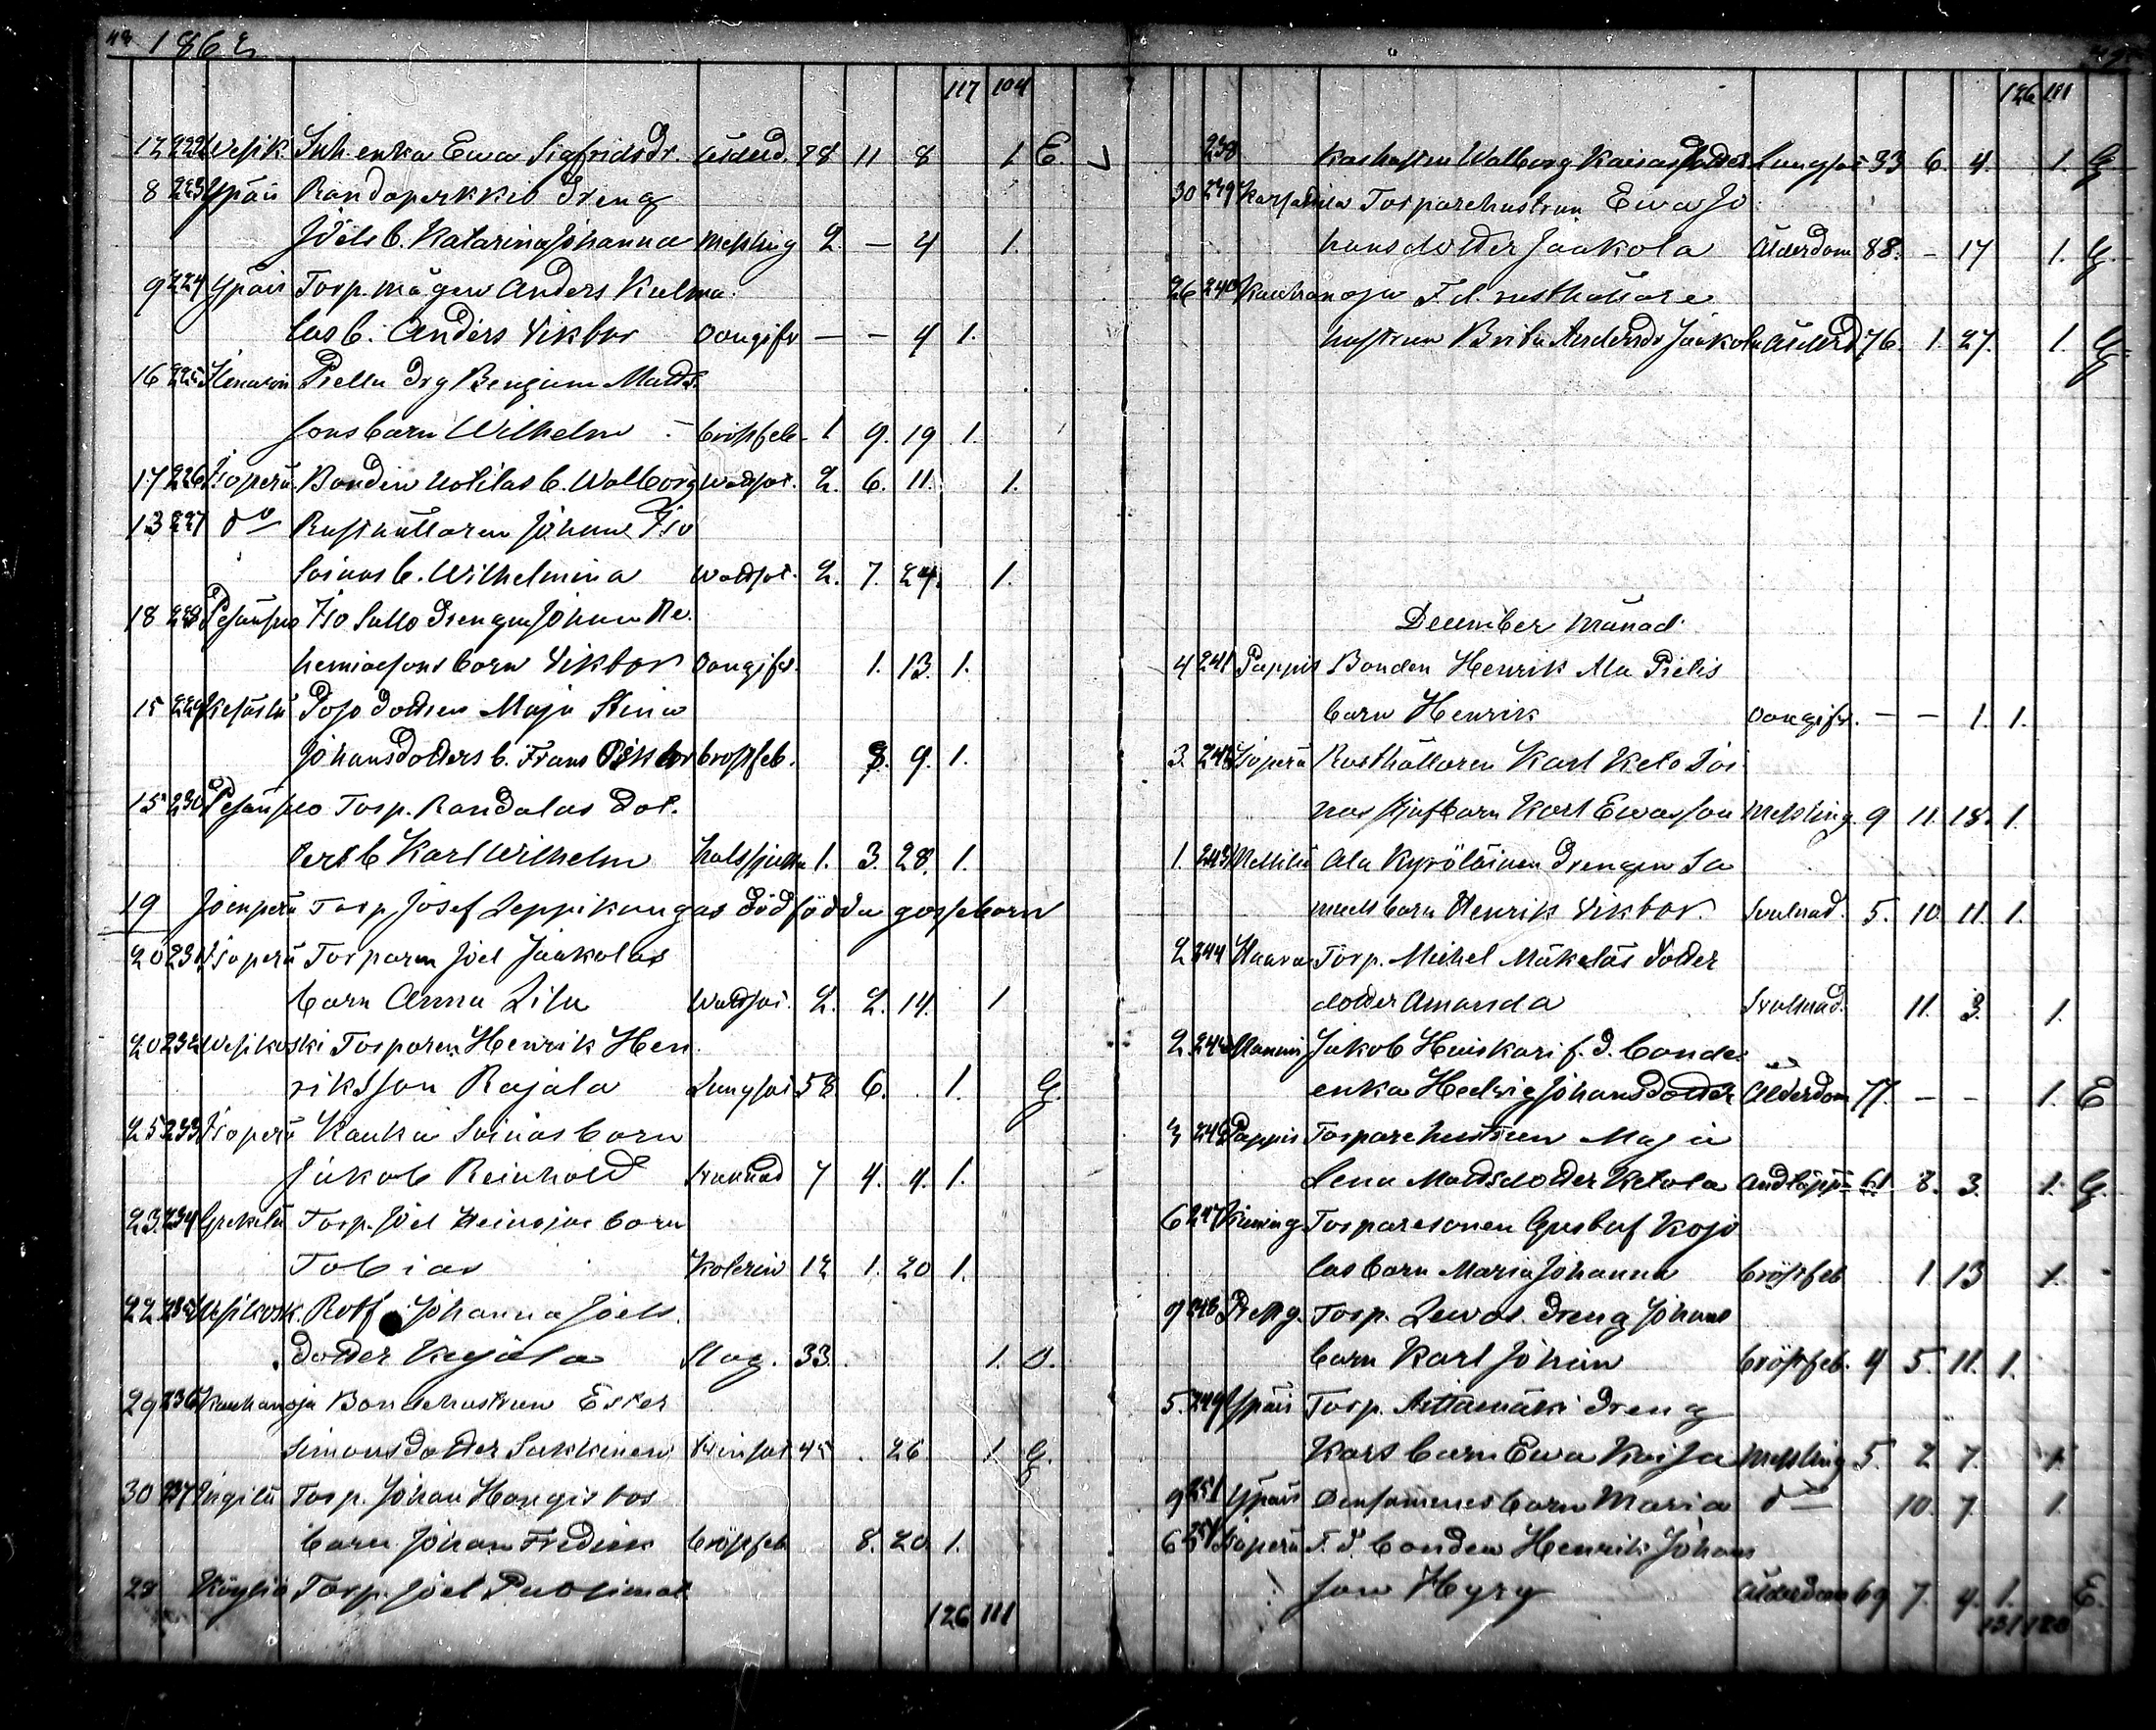 1862
117 104
12 222 Wesik. Inh. enka Ewa Sigfridsdr. ålderd. 78 11 8 1 E
8 223 Ypäis Randaperkkiö Dreng
Joels b. Katarina Johanna Messling 2 — 4 1.
9 224 Ypäis Torp. mågen Anders Kulma
las b. Anders Viktor Oangifv — — 4 1.
16 225 Piella Drg Benjam Matts
sons barn Wilhelm bröstfeb. 1 9. 19 1.
17 226 Isoperä Bonden Uotilas b. Walborg Wattsot. 2. 6. 11. 1.
13 227 do Rusthållaren Johan Iso
Soinas b. Wilhelmina Wattsot. 2. 7. 24. 1.
18 228 Iso Sallo Drengen Johan Ne
hemiassons barn Viktor Oangifv. 1. 13. 1.
15 229 Pojo dottren Maja Stina
Johansdotters b. Frans Viktor bröstfeb. 8. 9. 1.
15 230 Torp. Randalas dot.
ters b Karl Wilhelm halssjuka 1. 3. 28. 1.
19 Joenperä Torp Josef Leppikangas dödfödda gossebarn
20 231 Isoperä Torparen Joel Jaakolas
barn Anna Lisa Wattsot. 2. 2. 14. 1
20 232 Wesikoski Torparen Henrik Hen
riksson Rajala Lungsot 58 6. 1. G.
25 233 Isoperä Kauka Soinas barn
Jakob Reinhold Svullnad 7 4. 4. 1.
23. 234 Torp. Joel Heinojas barn
Tobias Kolerin 12 1. 20 1.
22 235 Wesikosk. Rotf Johanna Joels
dotter Kyjälä Slag. 33. 1. O.
29 236 Kauhanoja Bondehustrun Ester
Simonsdotter Sakkinen 45 . 26. 1 G.
30 237 Torp. Johan Hongistos
barn Johan Fredrik bröstfeb 8. 20. 1.
28 Köyliö Torp. Joel
126 111
126 111
238 Walborg Kaisasdotter Lungsot 33 6. 4. 1. G
30 239 Torparehustrun Ewa Jo
hansdotter Jaakola Ålderdom 88. — 17 1. G.
26 240 Kauhanoja F.d. rusthållare
hustrun Brita Andersdr Jaakola Ålderd 76. 1. 27. 1. G
December månad
4 241 Pappis Bonden Henrik Ala Pietis
barn Henrik Oangifv. — — 1. 1.
3. 242 Isoperä Rusthållaren Karl Kelo Soi
nas Karl Ewasson Messling. 9 11. 18. 1.
1. 243 Mellilä Ala Kyröläinen Drengen Sa
muels barn Henrik Viktor. Svulnad. 5. 10. 11. 1.
2 244 Haara Torp. Michel Mäkeläs dotter
dotter Amanda Svullnad. 11. 3. 1.
2 245 Jakob Huiskari f.d. bonde
enka Hedvig Johansdotter Ålderdom 77. — — 1. E
3 246 Pappis Torparehustrun Maja
Lena Mattsdotter Ketola Andtäppa 61 8. 3. 1. G.
6 247 Torparesonen Gustaf Kojo
las barn Maria Johanna bröstfeb 1. 13 1.
9 248 Torp. Lewos Dreng Johans
barn Karl Johan bröstfeb. 4 5. 11. 1.
5. 249 Ypäis Torp. Aittamäki Dreng
Karls barn Ewa Kaisa Messling 5. 2 7. 1.
9 251 Ypäis Densammes barn Maria do 10. 7. 1.
6 251 Isoperä F.d. bonden Henrik Johans
son Hyry Ålderdom 69 7. 4. 1. E.
131 120